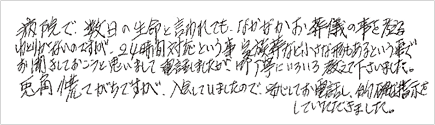 病院で、数日の生命と言われても、なかなかお葬儀の事を考える
ゆとりがないのですが、24時間対応という事 家族葬など小さな形もあるという事で
お聞きしておこうと思いまして電話しましたが 丁寧にいろいろ教えて下さいました。
兎角慌てがちですが、入会していましたので、安心してお電話し、的確な指示を
していただきました。